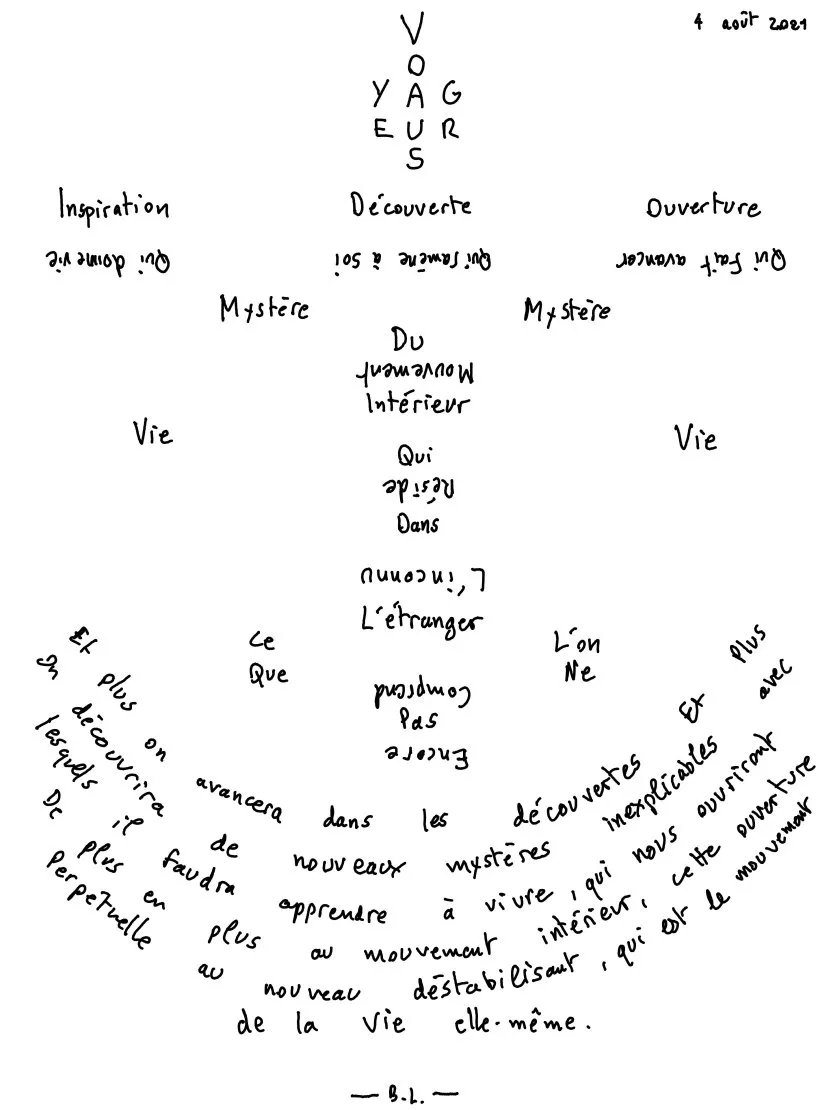 4 août 2021
V
O
Y A G
E U R
S
Inspiration Découverte Ouverture
Qui donne vie Qui ramène à soi Qui fait avancer
Mystère Mystère
Du
Mouvement
Intérieur
Vie Vie
Qui
Réside
Dans
L'inconnu
L'étranger
Ce L'on
Que Ne
Comprend
Pas
Encore
Et plus on avancera dans les découvertes Et Plus
On découvrira de nouveaux mystères inexplicables avec
lesquels il faudra apprendre à vivre, qui nous ouvriront
De plus en plus au mouvement intérieur, cette ouverture
Perpetuelle au nouveau déstabilisant, qui est le mouvement
de la vie elle-même.
— B.L. —